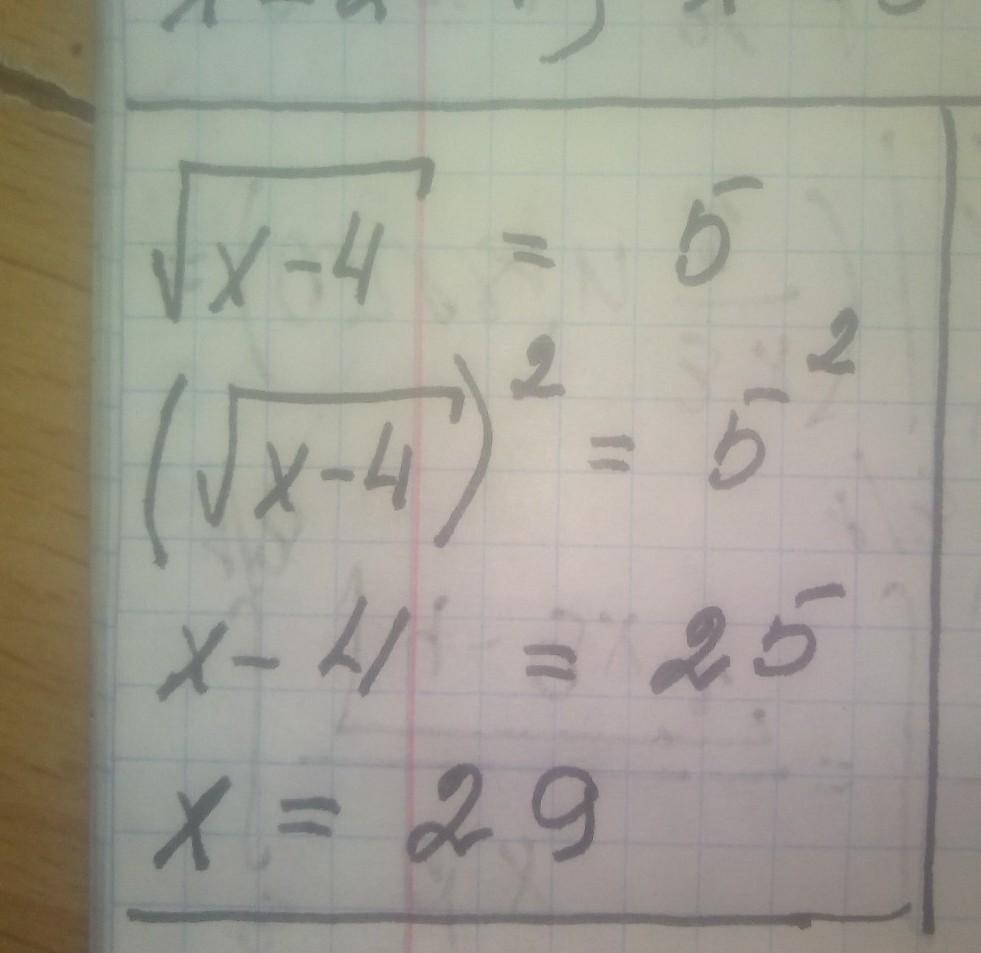 √(x-4) = 5
(√(x-4))² = 5²
x-4 = 25
x = 29